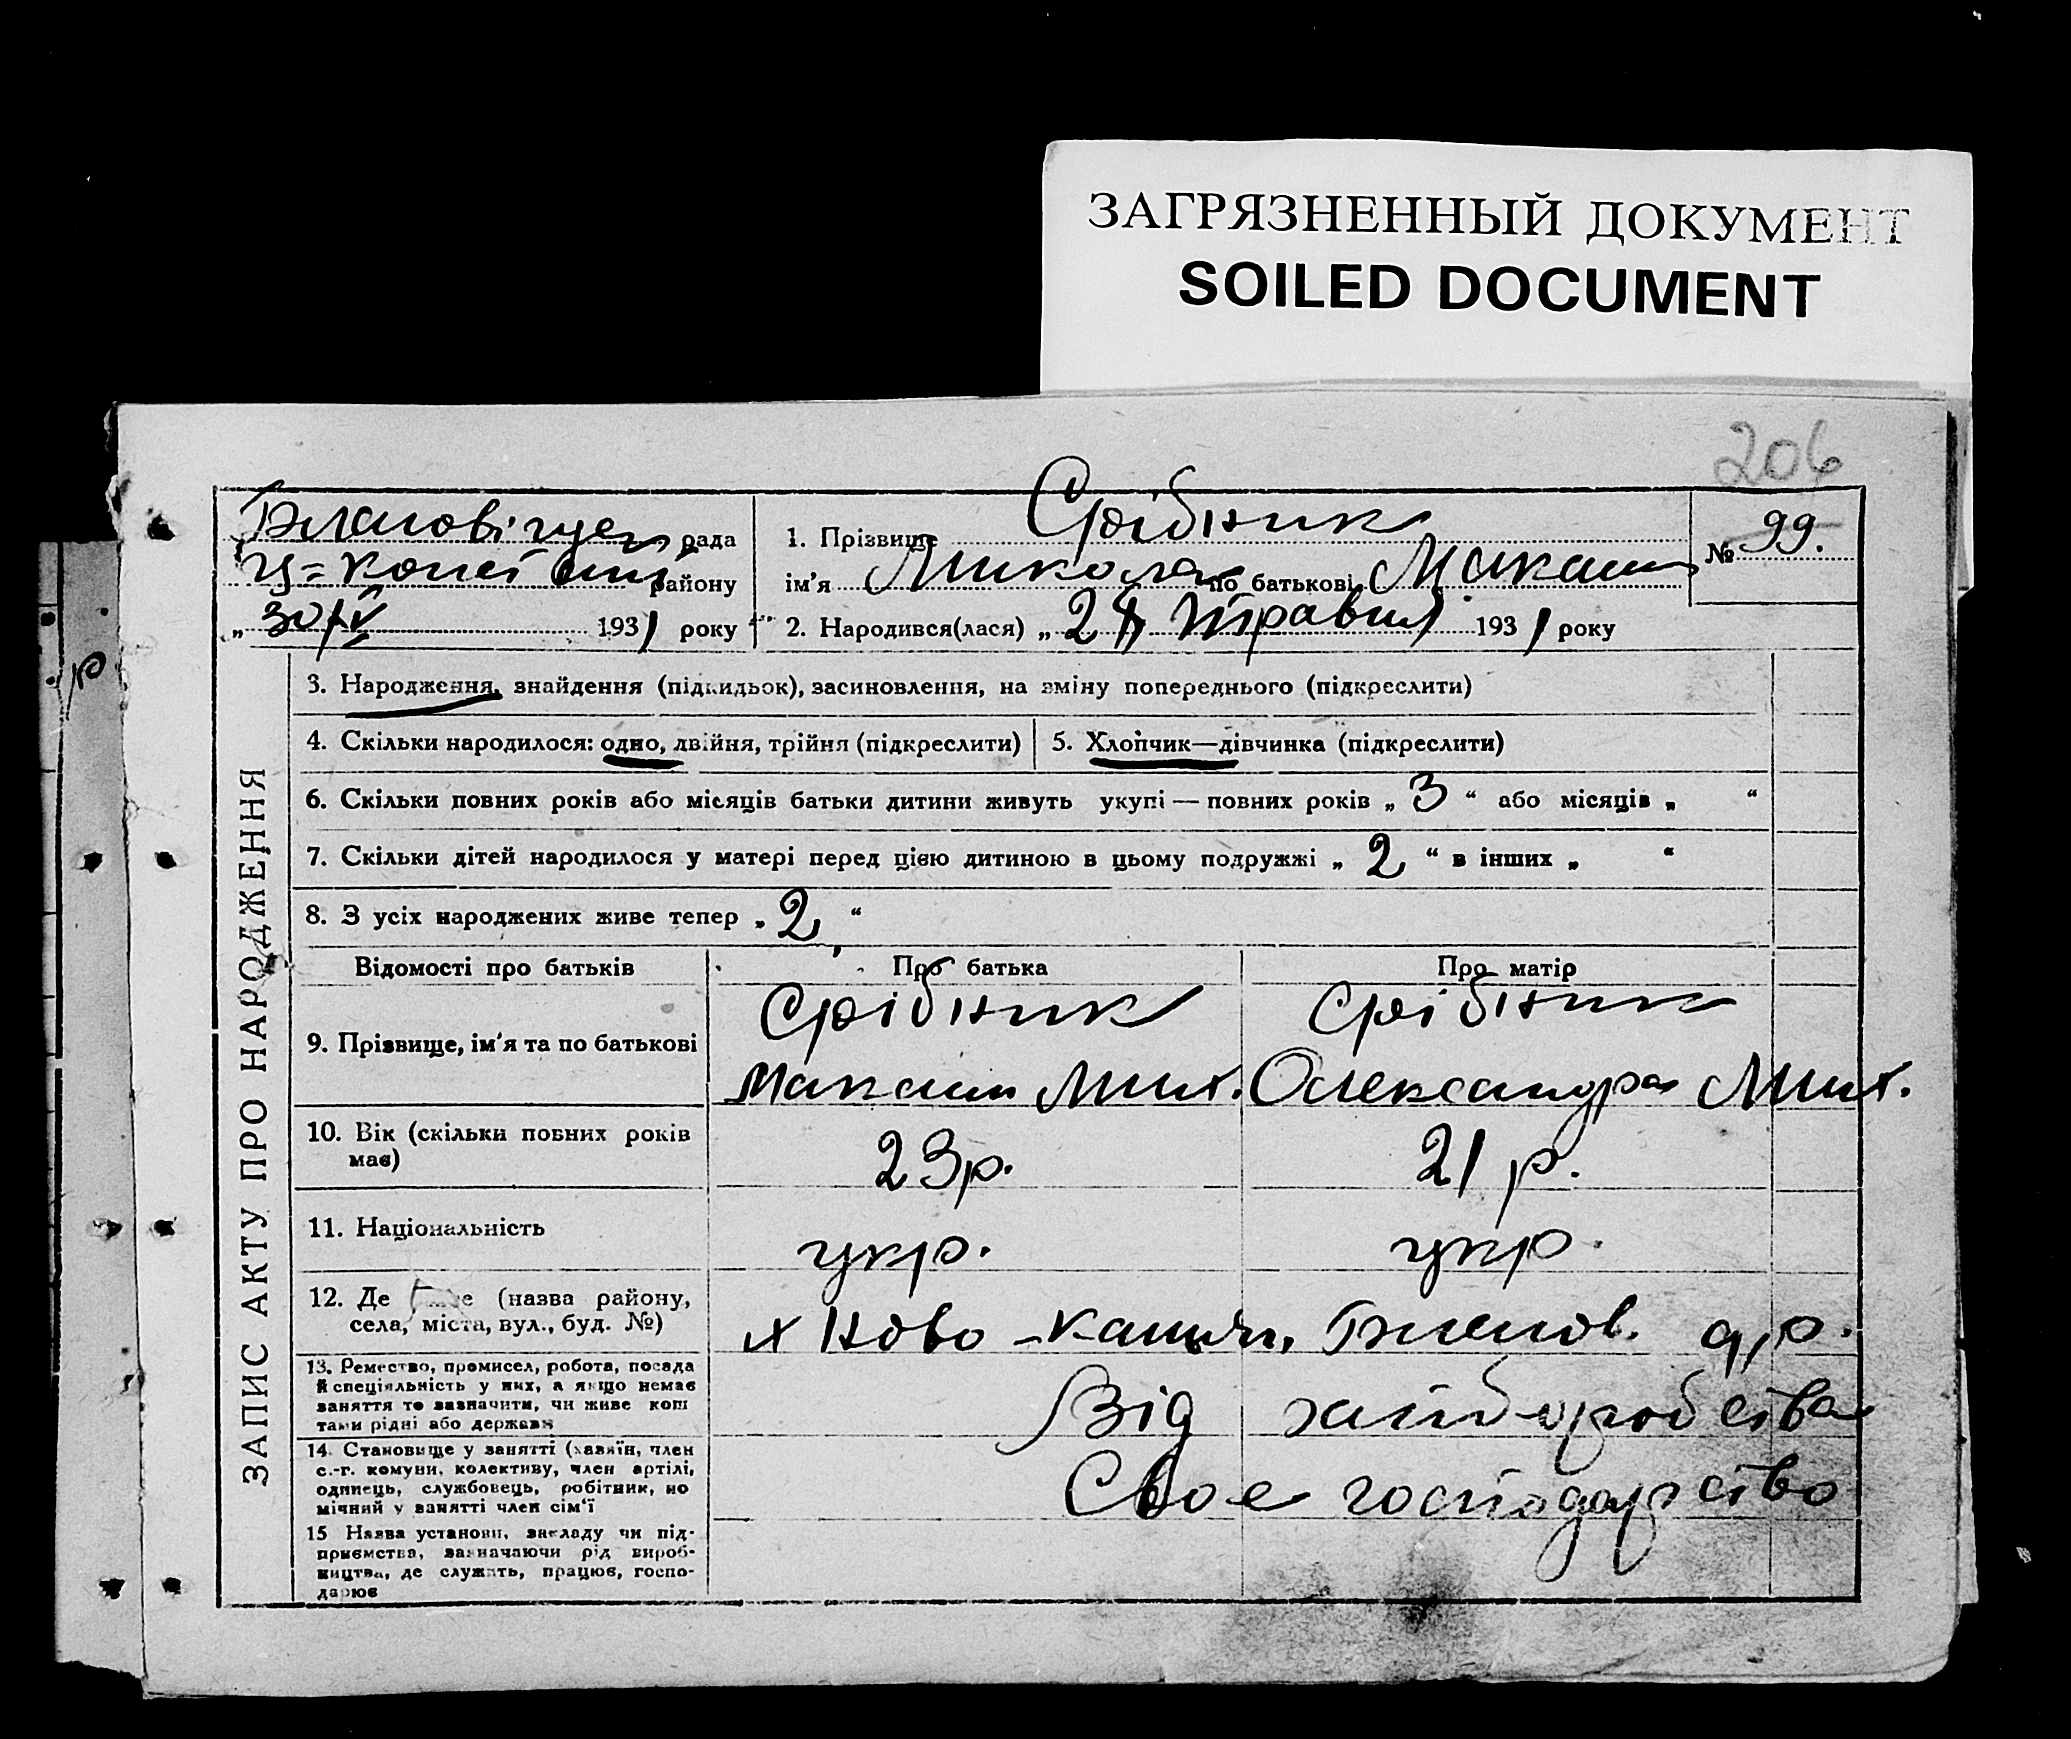 ЗАГРЯЗНЕННЫЙ ДОКУМЕНТ
SOILED DOCUMENT
206
рада
району
„ 30/V 1931 року
1. Прізвище Срібник
ім'я Микола по батькові Максим
№ 99.
2. Народився(лася) „ 2 Травня 1931 року
ЗАПИС АКТУ ПРО НАРОДЖЕННЯ
3. Народження, знайдення (підкидьок), засиновлення, на зміну попереднього (підкреслити)
4. Скільки народилося: одно, двійня, трійня (підкреслити)
5. Хлопчик—дівчинка (підкреслити)
6. Скільки повних років або місяців батьки дитини живуть укупі — повних років „ 3 “ або місяців „ “
7. Скільки дітей народилося у матері перед цією дитиною в цьому подружжі „ 2 “ в інших „ “
8. З усіх народжених живе тепер „ 2 “
Відомості про батьків
Про батька
Про матір
9. Прізвище, ім'я та по батькові
Срібник
Максим Мих.
Срібник
Олександра Мих.
10. Вік (скільки повних років
має)
23 р.
21 р.
11. Національність
укр.
укр.
12. Де (назва району,
села, міста, вул., буд. №)
х Ново
13. Ремество, промисел, робота, посада
й спеціяльність у них, а якщо немає
заняття то зазначити, чи живе кош
тами рідні або держави
Від хліборобства
14. Становище у занятті (хазяїн, член
с.-г. комуни, колективу, член артілі,
одинець, службовець, робітник, по
мічний у занятті член сім'ї
Своє господарство
15 Назва установи, закладу чи під-
приємства, зазначаючи рід вироб-
ництва, де служить, працює, госпо-
дарює